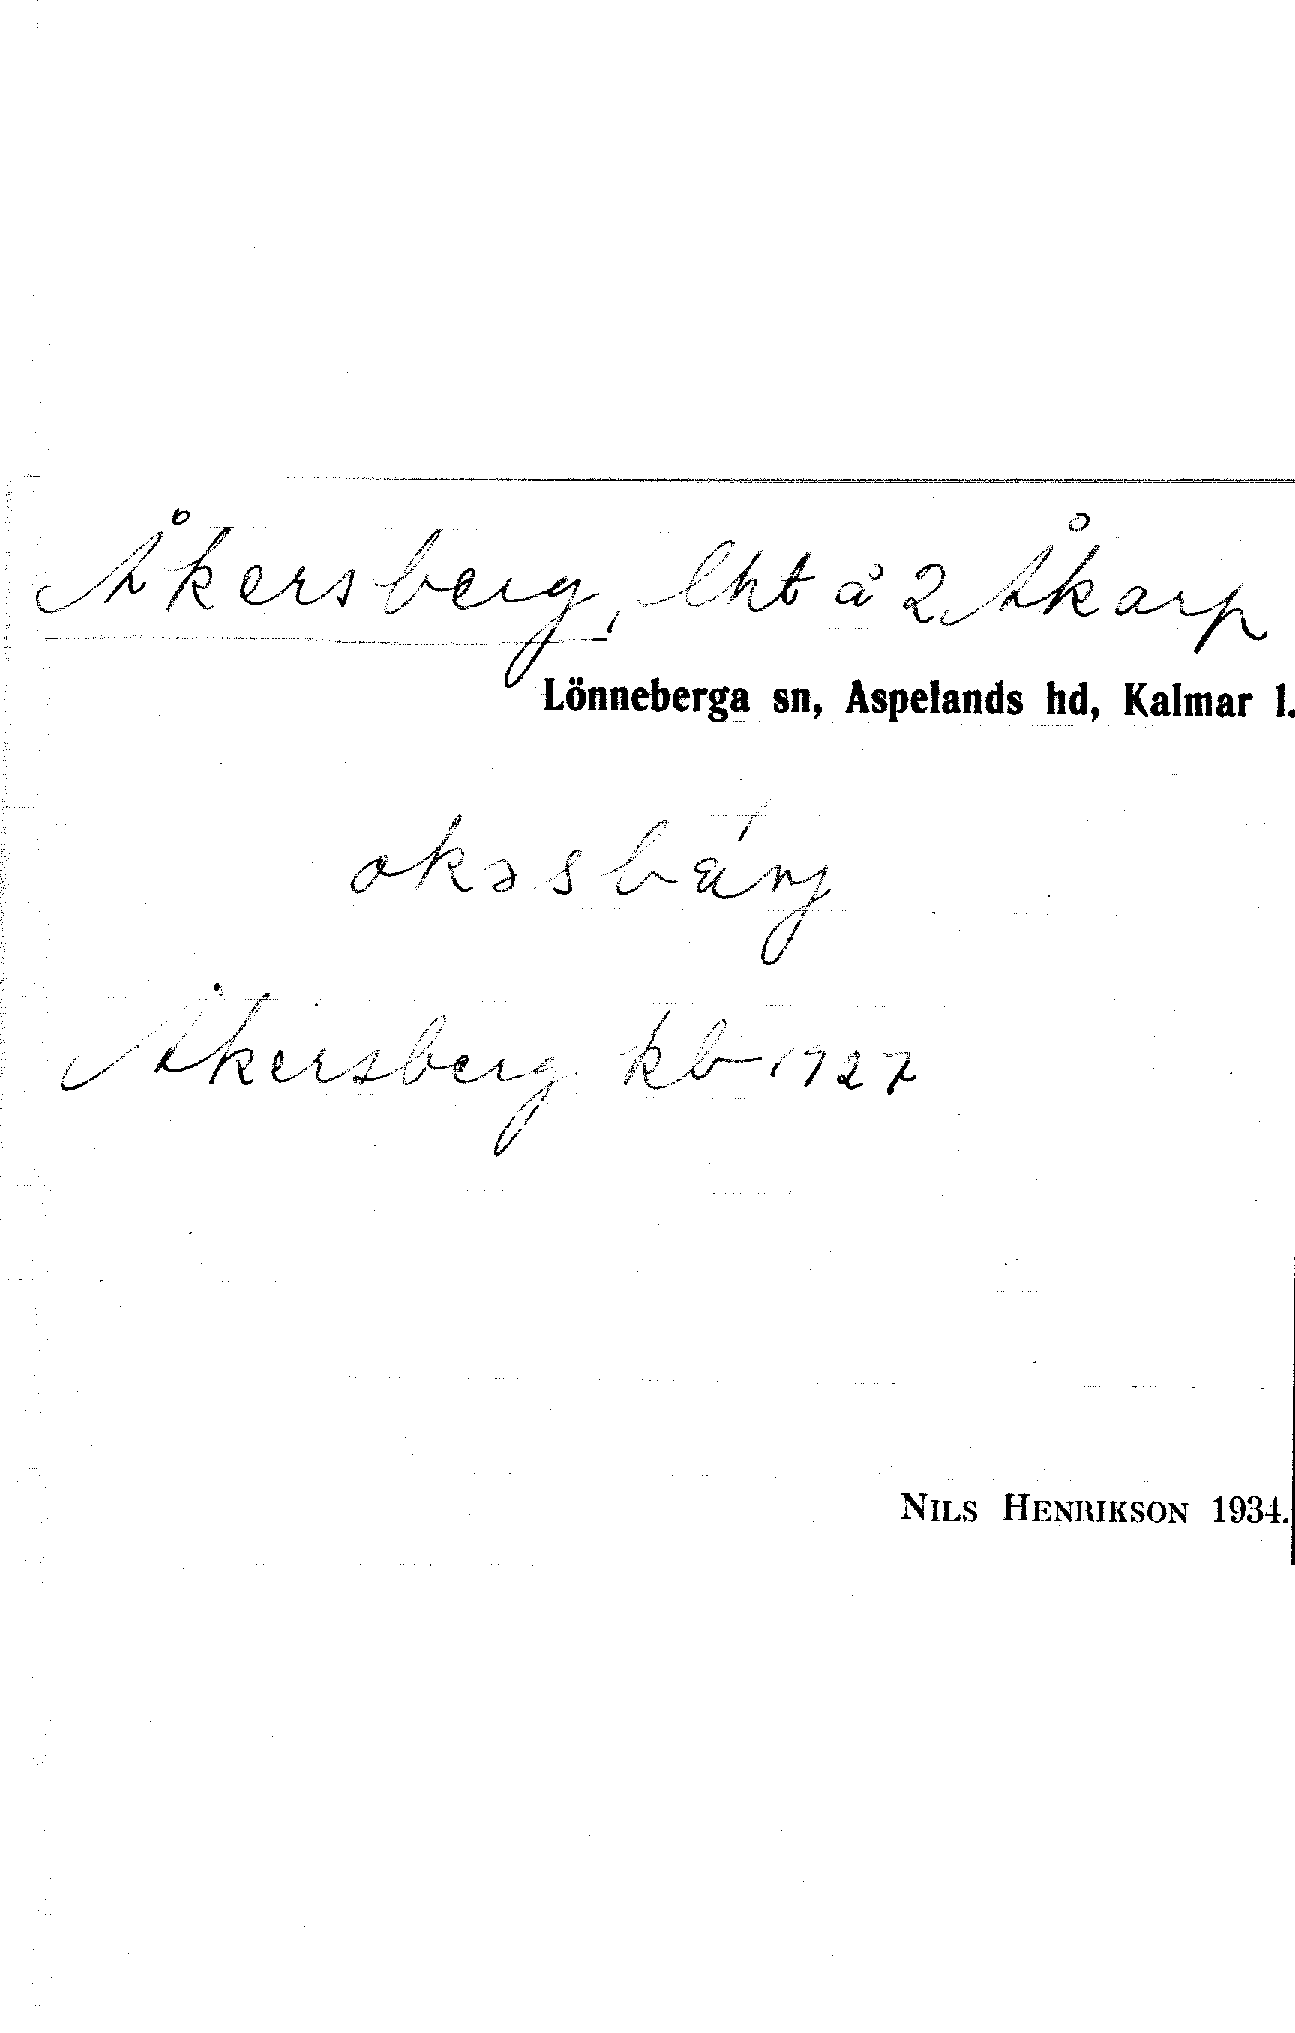 Åkersberg, lht å 2 Åkarp
Lönneberga sn, Aspelands hd, Kalmar l.
okəsbärj
Åkersberg kb 1727
NILS HENRIKSON 1934.